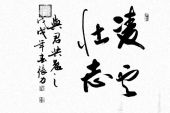 凌云
壮志
與君共勉之
戊戌年